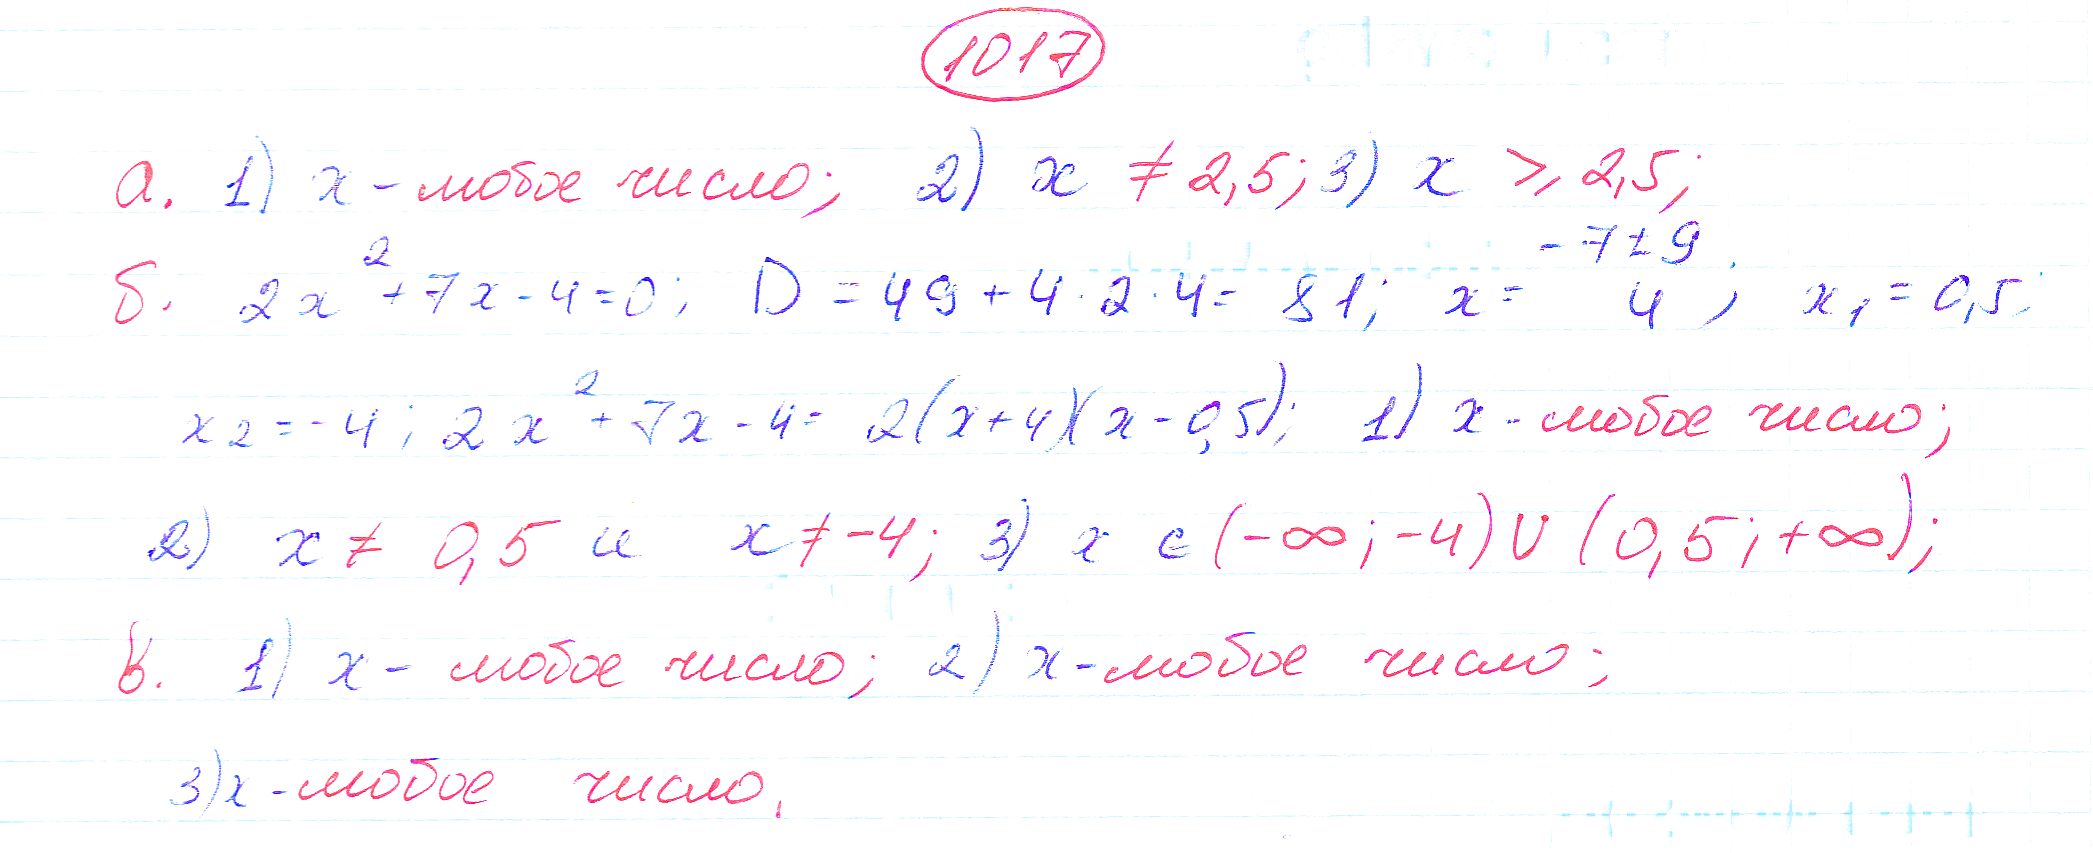 1017
а. 1) x - любое число; 2) x ≠ 2,5; 3) x ⩾ 2,5;
б. 2x² + 7x - 4 = 0; D = 49 + 4 · 2 · 4 = 81; x = (-7 ± 9)/4; x₁ = 0,5;
x₂ = -4; 2x² + 7x - 4 = 2(x+4)(x-0,5); 1) x - любое число;
2) x ≠ 0,5 и x ≠ -4; 3) x ∈ (-∞; -4) ∪ (0,5; +∞);
в. 1) x - любое число; 2) x - любое число;
3) x - любое число.